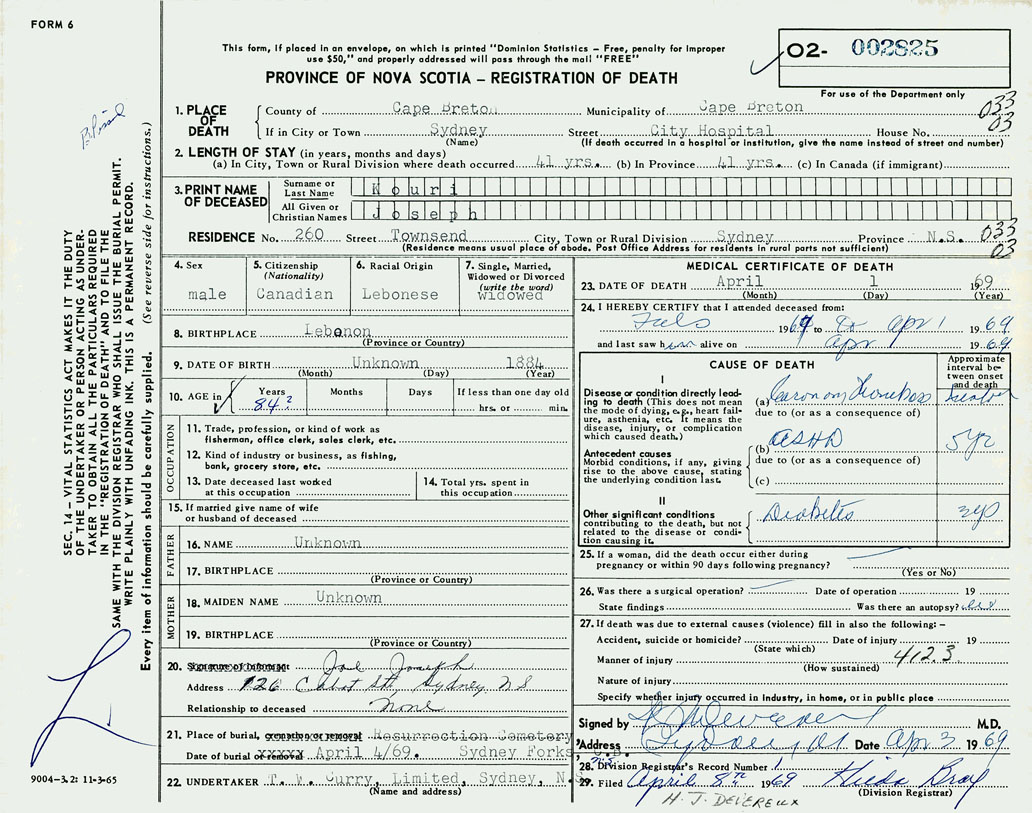 FORM 6
This form, if placed in an envelope, on which is printed "Dominion Statistics – Free, penalty for improper
use $50," and properly addressed will pass through the mail "FREE"
PROVINCE OF NOVA SCOTIA – REGISTRATION OF DEATH
02- 002825
For use of the Department only
SEC. 14 – VITAL STATISTICS ACT MAKES IT THE DUTY
OF THE UNDERTAKER OR PERSON ACTING AS UNDER-
TAKER TO OBTAIN ALL THE PARTICULARS REQUIRED
IN THE "REGISTRATION OF DEATH" AND TO FILE THE
SAME WITH THE DIVISION REGISTRAR WHO SHALL ISSUE THE BURIAL PERMIT.
WRITE PLAINLY WITH UNFADING INK. THIS IS A PERMANENT RECORD.
Every item of information should be carefully supplied. (See reverse side for instructions.)
1. PLACE OF DEATH County of Cape Breton Municipality of Cape Breton 033
If in City or Town Sydney Street City Hospital House No. 03
(Name) (If death occurred in a hospital or institution, give the name instead of street and number)
2. LENGTH OF STAY (in years, months and days)
(a) In City, Town or Rural Division where death occurred 41 yrs. (b) In Province 41 yrs. (c) In Canada (if immigrant)
3. PRINT NAME OF DECEASED Surname or Last Name Kouri
All Given or Christian Names Joseph
RESIDENCE No. 260 Street Townsend City, Town or Rural Division Sydney Province N.S. 033
(Residence means usual place of abode. Post Office Address for residents in rural parts not sufficient) 03
4. Sex male
5. Citizenship (Nationality) Canadian
6. Racial Origin Lebonese
7. Single, Married, Widowed or Divorced (write the word) widowed
8. BIRTHPLACE Lebonon
(Province or Country)
9. DATE OF BIRTH Unknown 1884
(Month) (Day) (Year)
10. AGE in Years Months Days If less than one day old
84? hrs. or min.
OCCUPATION
11. Trade, profession, or kind of work as
fisherman, office clerk, sales clerk, etc.
12. Kind of industry or business, as fishing,
bank, grocery store, etc.
13. Date deceased last worked
at this occupation
14. Total yrs. spent in
this occupation
15. If married give name of wife
or husband of deceased
FATHER
16. NAME Unknown
17. BIRTHPLACE
(Province or Country)
MOTHER
18. MAIDEN NAME Unknown
19. BIRTHPLACE
(Province or Country)
20. Signature of informant Joe Joseph
Address 126 Cabot St., Sydney, NS
Relationship to deceased None
21. Place of burial, cremation or removal Resurrection Cemetery
Date of burial or removal April 4/69. Sydney Forks, C.B.
22. UNDERTAKER T. W. Curry, Limited, Sydney, N.S.
(Name and address)
9004–3.2: 11-3-65
MEDICAL CERTIFICATE OF DEATH
23. DATE OF DEATH April 1 1969
(Month) (Day) (Year)
24. I HEREBY CERTIFY that I attended deceased from:
1969 to Apr 1 1969
and last saw him alive on Apr 1969
CAUSE OF DEATH
Approximate interval between onset and death
I
Disease or condition directly leading to death (This does not mean the mode of dying, e.g., heart failure, asthenia, etc. It means the disease, injury, or complication which caused death.)
(a) Coronary Thrombosis
due to (or as a consequence of)
Antecedent causes
Morbid conditions, if any, giving rise to the above cause, stating the underlying condition last.
(b) ASHD 5yr
due to (or as a consequence of)
(c)
II
Other significant conditions contributing to the death, but not related to the disease or condition causing it.
Diabetes
25. If a woman, did the death occur either during
pregnancy or within 90 days following pregnancy?
(Yes or No)
26. Was there a surgical operation? Date of operation 19
State findings Was there an autopsy?
27. If death was due to external causes (violence) fill in also the following: –
Accident, suicide or homicide? Date of injury 19
(State which)
Manner of injury 412.3
(How sustained)
Nature of injury
Specify whether injury occurred in industry, in home, or in public place
Signed by M.D.
Address Date Apr 3 1969
28. Division Registrar's Record Number
29. Filed April 8th 1969 Hilda Bray
(Division Registrar)
H. J. DEVEREUX